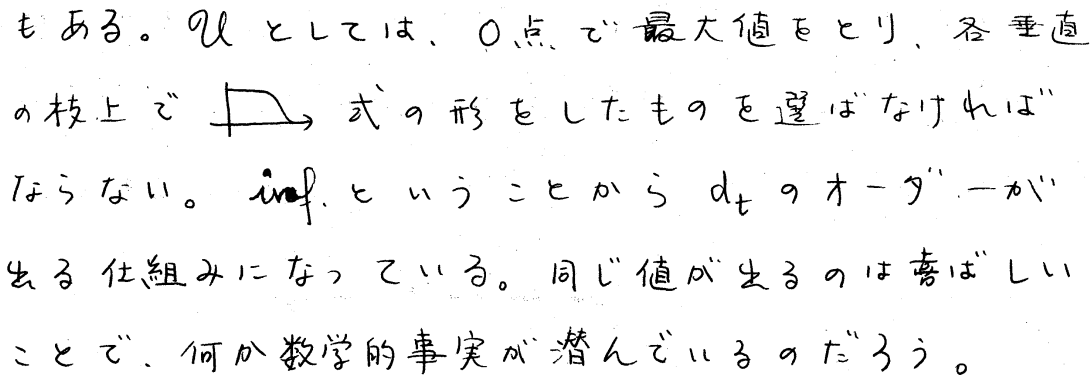 もある。𝒰 としては、0点で最大値をとり、各垂直
の枝上で 式の形をしたものを選ばなければ
ならない。inf. ということから dₜ のオーダーが
出る仕組みになっている。同じ値が出るのは喜ばしい
ことで、何か数学的事実が潜んでいるのだろう。